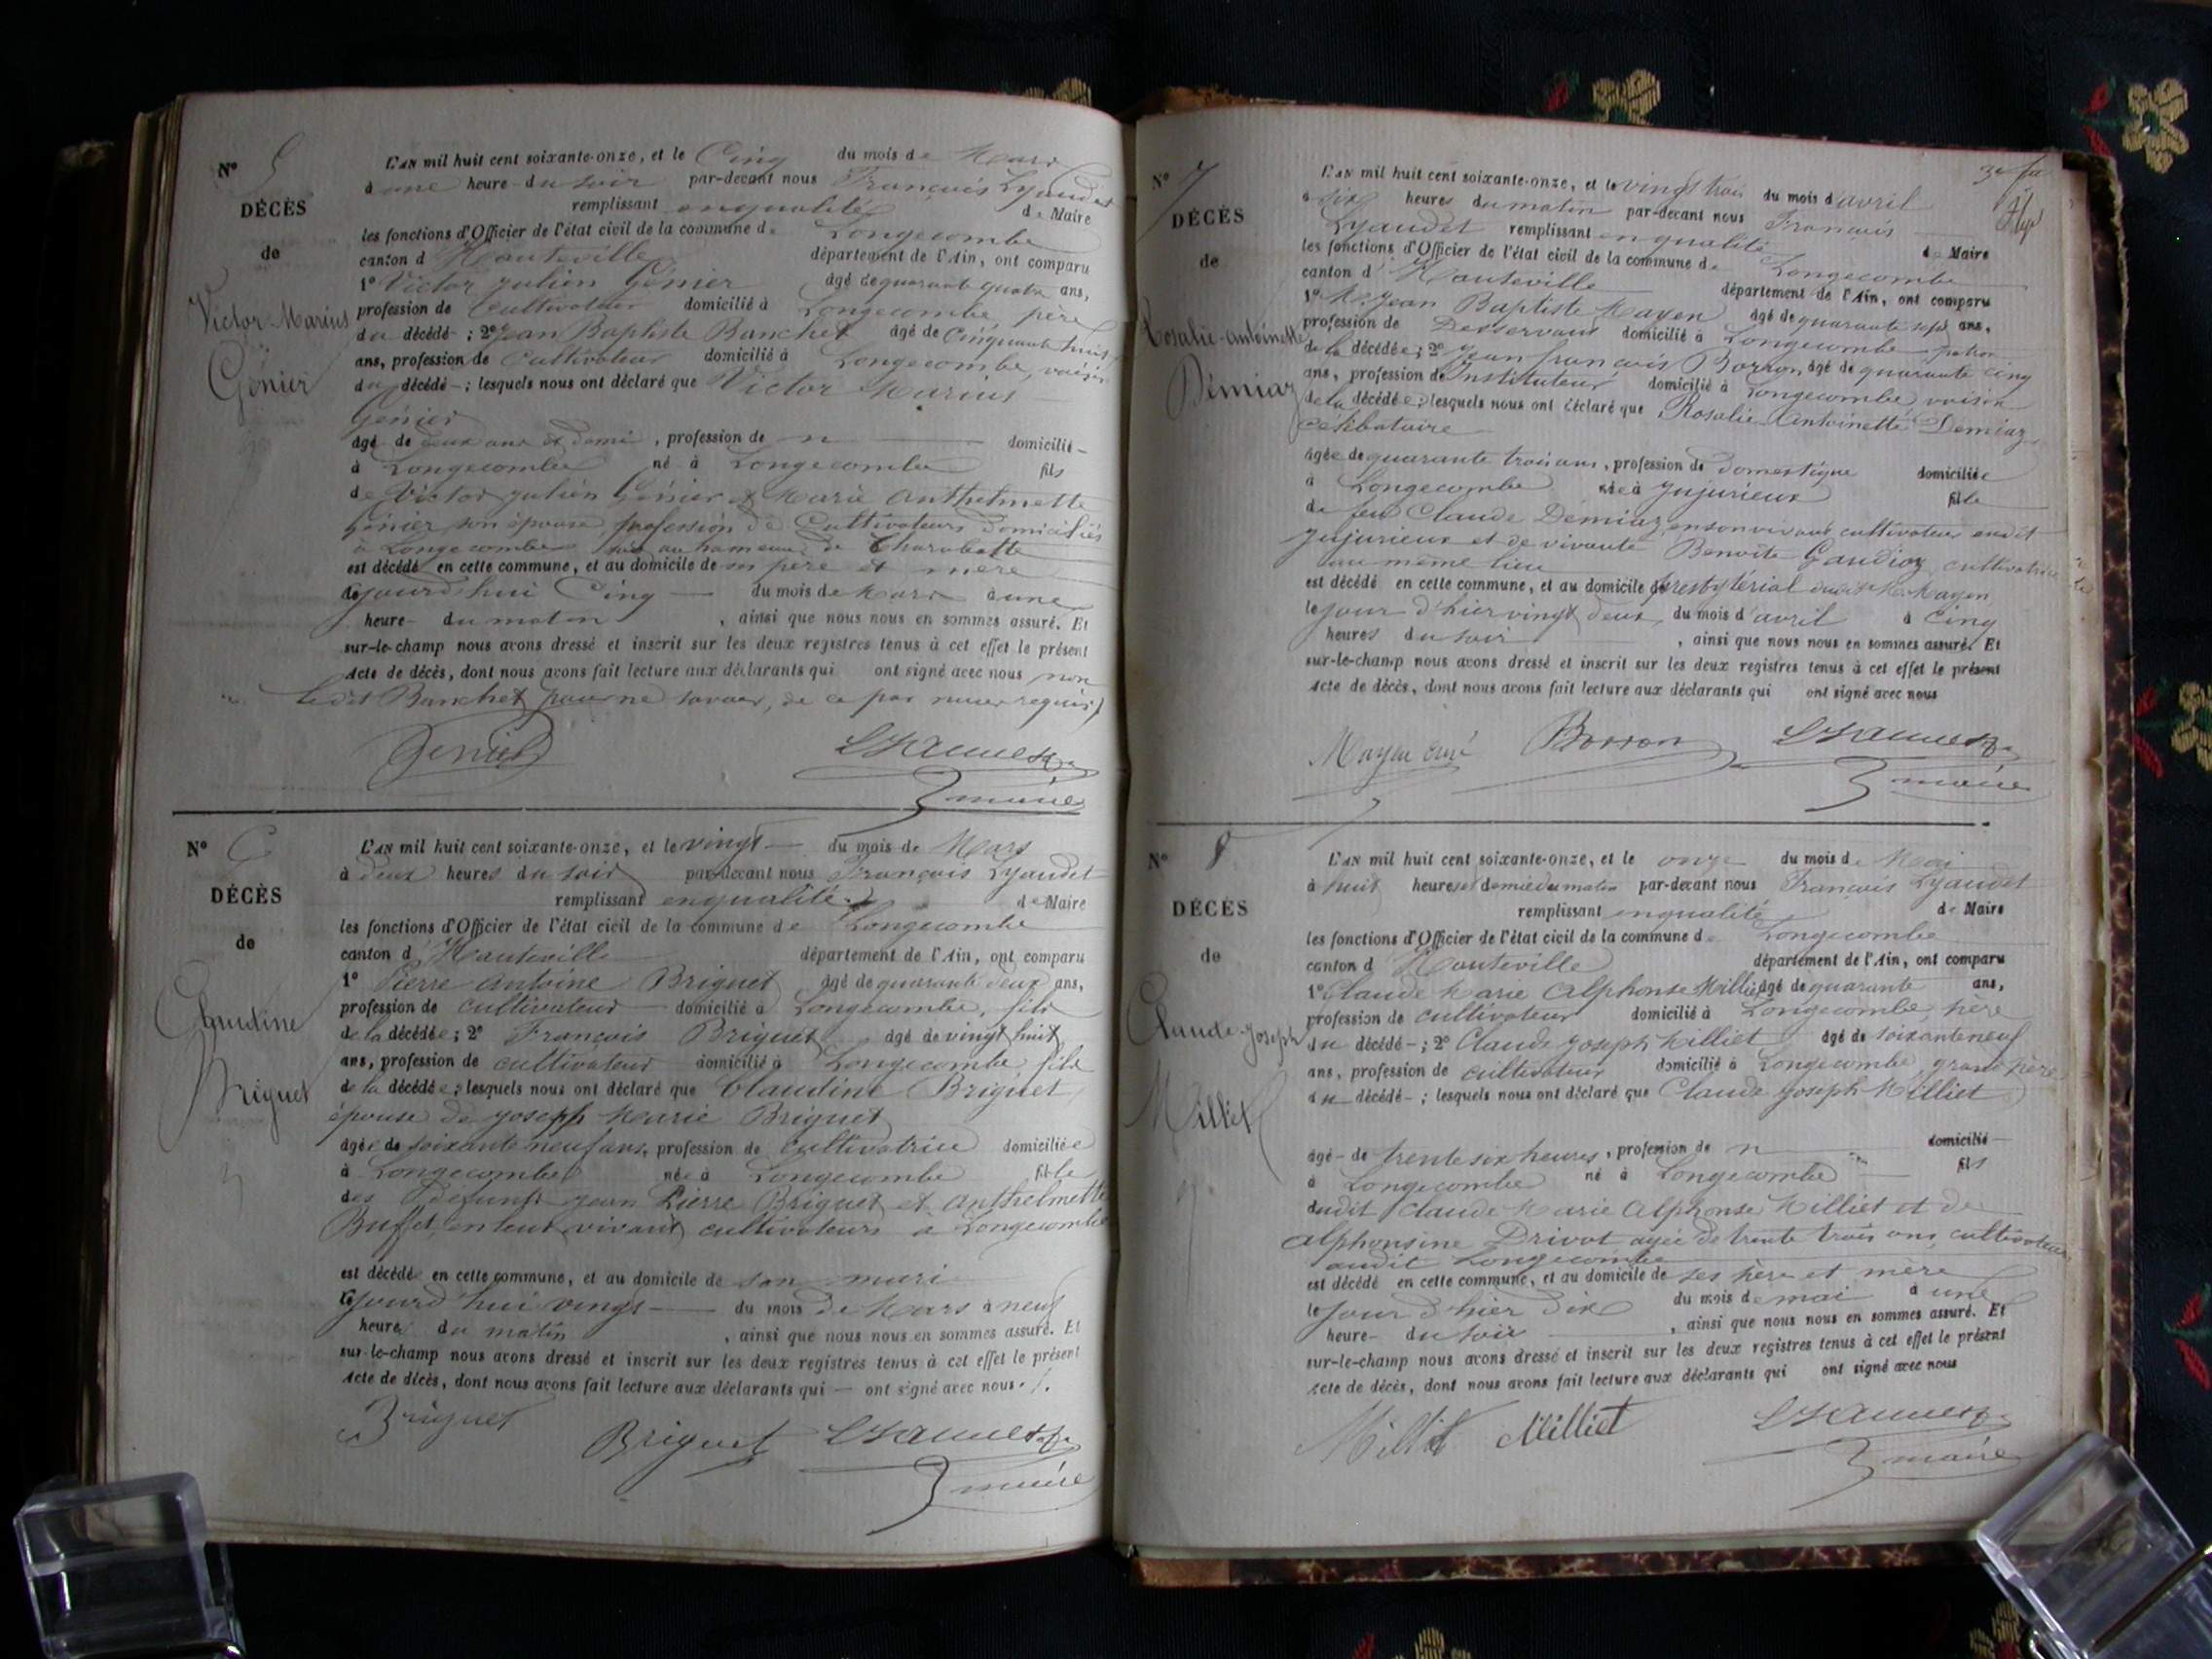 N° 5
DÉCÈS
de
Victor-Marius
Génier
L'AN mil huit cent soixante-onze, et le Cinq du mois de Mars
à une heure du soir par-devant nous François Lyaudet
remplissant en qualité de Maire
les fonctions d'Officier de l'état civil de la commune de Longecombe
canton d'Hauteville département de l'Ain, ont comparu
1° Victor Julien Génier âgé de quarante quatre ans,
profession de Cultivateur domicilié à Longecombe, père
du décédé ; 2° Jean Baptiste Banchet âgé de Cinquante huit
ans, profession de Cultivateur domicilié à Longecombe, voisin
du décédé ; lesquels nous ont déclaré que Victor Marius
Génier
âgé de deux ans et demi, profession de n domicilié
à Longecombe né à Longecombe fils
de Victor Julien Génier & Marie Anthelmette
Génier son épouse, profession de Cultivateurs domiciliés
à Longecombe au hameau de Charabotte
est décédé en cette commune, et au domicile de ses père et mère
cejourd'hui Cinq du mois de Mars à une
heure du matin, ainsi que nous nous en sommes assuré. Et
sur-le-champ nous avons dressé et inscrit sur les deux registres tenus à cet effet le présent
Acte de décès, dont nous avons fait lecture aux déclarants qui ont signé avec nous non
ledit Banchet pour ne savoir, de ce par nous requis
Génier Lyaudet
maire
N° 6
DÉCÈS
de
Claudine
Briguet
L'AN mil huit cent soixante-onze, et le vingt du mois de Mars
à deux heures du soir par-devant nous François Lyaudet
remplissant en qualité de Maire
les fonctions d'Officier de l'état civil de la commune de Longecombe
canton d'Hauteville département de l'Ain, ont comparu
1° Pierre Antoine Briguet âgé de quarante deux ans,
profession de cultivateur domicilié à Longecombe, fils
de la décédée ; 2° François Briguet âgé de vingt huit
ans, profession de cultivateur domicilié à Longecombe fils
de la décédée ; lesquels nous ont déclaré que Claudine Briguet
épouse de Joseph Marie Briguet
âgée de soixante neuf ans, profession de Cultivatrice domiciliée
à Longecombe née à Longecombe fille
des défunts Jean Pierre Briguet et Anthelmette
Buffet, en leur vivant cultivateurs à Longecombe
est décédé en cette commune, et au domicile de son mari
cejourd'hui vingt du mois de Mars à neuf
heures du matin, ainsi que nous nous en sommes assuré. Et
sur-le-champ nous avons dressé et inscrit sur les deux registres tenus à cet effet le présent
Acte de décès, dont nous avons fait lecture aux déclarants qui — ont signé avec nous.
Briguet Briguet Lyaudet
maire
N° 7
DÉCÈS
de
Rosalie-Antoinette
Démiaz
L'AN mil huit cent soixante-onze, et le vingt trois du mois d'avril
à six heures du matin par-devant nous François
Lyaudet remplissant en qualité de Maire
les fonctions d'Officier de l'état civil de la commune de Longecombe
canton d'Hauteville département de l'Ain, ont comparu
1° M. Jean Baptiste Mayen âgé de quarante sept ans,
profession de Desservant domicilié à Longecombe patron
de la décédée ; 2° Jean françois Borron, âgé de quarante cinq
ans, profession de Instituteur domicilié à Longecombe voisin
de la décédée ; lesquels nous ont déclaré que Rosalie Antoinette Demiaz
célibataire
âgée de quarante trois ans, profession de domestique domiciliée
à Longecombe née à Jujurieux fille
de feu Claude Demiaz, en son vivant cultivateur audit
Jujurieux et de vivante Benoite Gaudioz cultivatrice
au même lieu
est décédé en cette commune, et au domicile presbytérial dudit M. Mayen
le jour d'hier vingt deux, du mois d'avril à Cinq
heures du soir, ainsi que nous nous en sommes assuré. Et
sur-le-champ nous avons dressé et inscrit sur les deux registres tenus à cet effet le présent
Acte de décès, dont nous avons fait lecture aux déclarants qui ont signé avec nous
Mayen curé Borron Lyaudet
maire
N° 8
DÉCÈS
de
Claude-Joseph
Milliet
L'AN mil huit cent soixante-onze, et le onze du mois de Mai
à huit heures et demie du matin par-devant nous François Lyaudet
remplissant en qualité de Maire
les fonctions d'Officier de l'état civil de la commune de Longecombe
canton d'Hauteville département de l'Ain, ont comparu
1° Claude Marie Alphonse Milliet âgé de quarante ans,
profession de cultivateur domicilié à Longecombe, père
du décédé ; 2° Claude Joseph Milliet âgé de soixante neuf
ans, profession de cultivateur domicilié à Longecombe, grand père
du décédé ; lesquels nous ont déclaré que Claude Joseph Milliet
âgé de trente six heures, profession de n domicilié
à Longecombe né à Longecombe fils
dudit Claude Marie Alphonse Milliet et de
Alphonsine Drivot agée de trente trois ans, cultivateurs
audit Longecombe
est décédé en cette commune, et au domicile de ses père et mère
le jour d'hier dix du mois de mai à une
heure du soir, ainsi que nous nous en sommes assuré. Et
sur-le-champ nous avons dressé et inscrit sur les deux registres tenus à cet effet le présent
Acte de décès, dont nous avons fait lecture aux déclarants qui ont signé avec nous
Milliet Milliet Lyaudet
maire